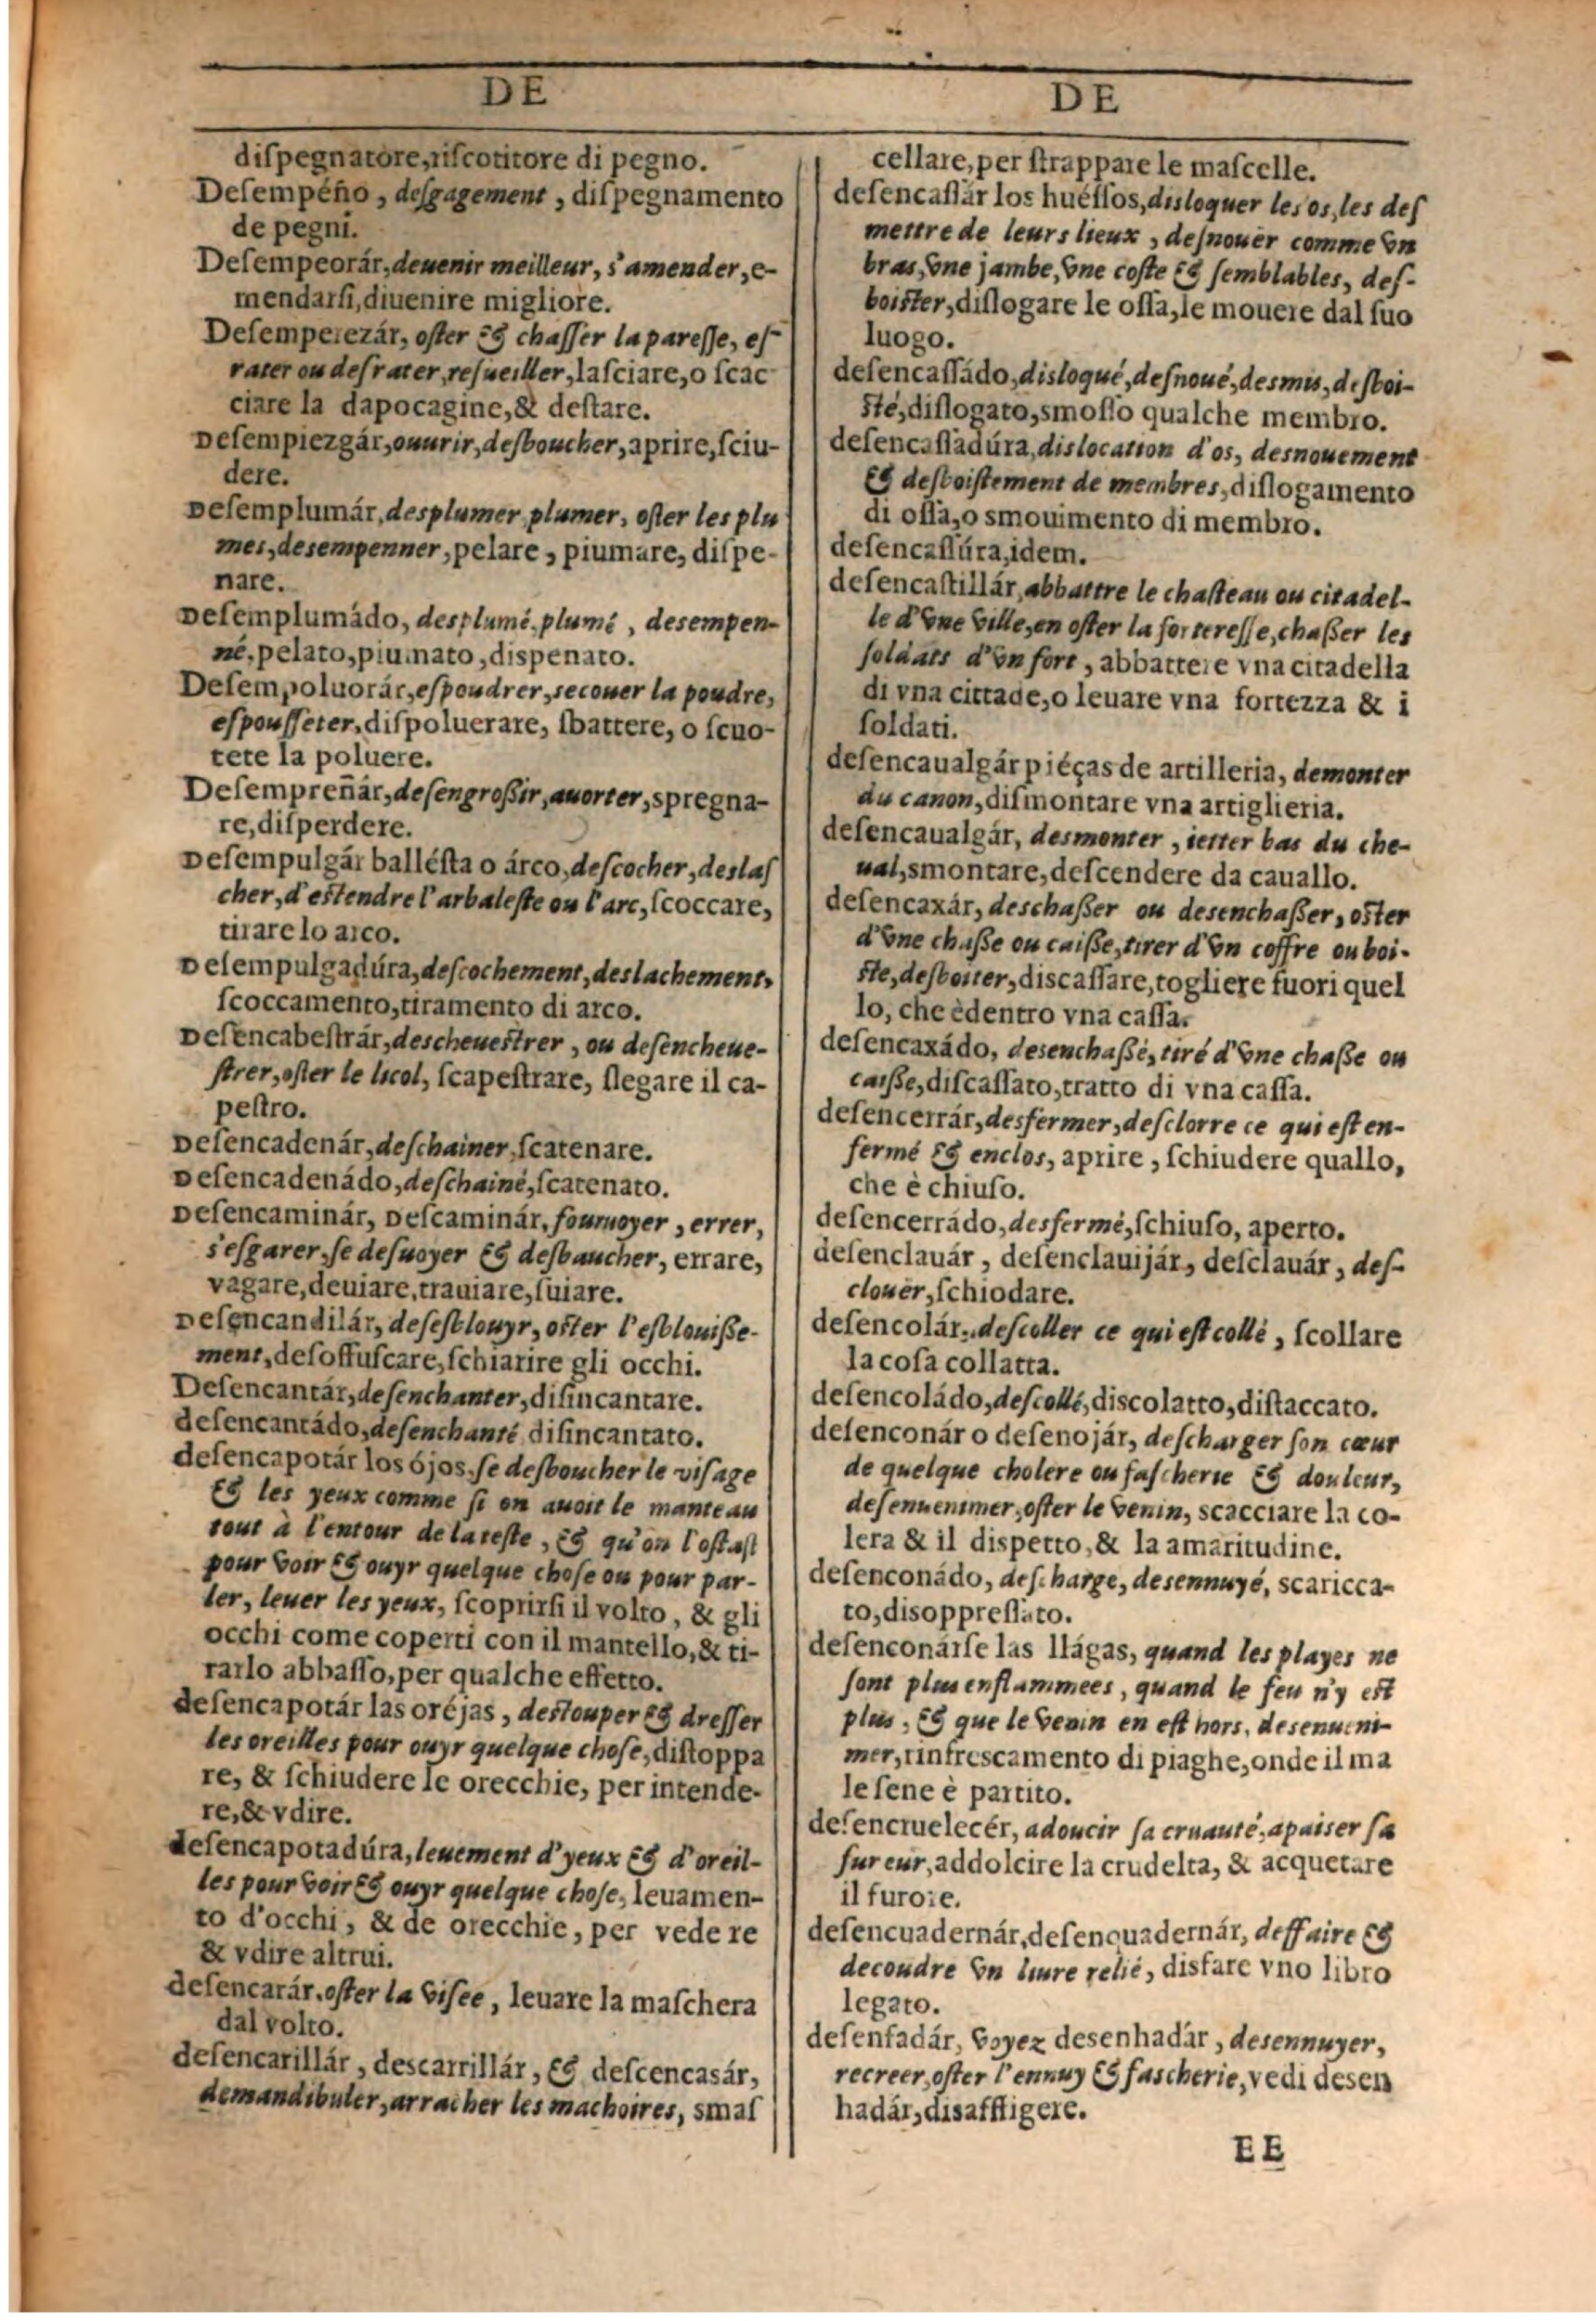 DE
diſpegnatore,riſcotitore di pegno.
Deſempéño , deſgagement , diſpegnamento
de pegni.
Deſempeorár,deuenir meilleur, s'amender,e-
mendarſi,diuenire migliore.
Deſemperezár, oſter & chaſſer la pareſſe, eſ-
rater ou deſrater,reſueiller,laſciare,o ſcac
ciare la dapocagine,& deſtare.
Deſempiezgár,ouurir,deſboucher,aprire,ſciu-
dere.
Deſemplumár,desplumer,plumer, oſter les plu
mes,desempenner,pelare , piumare, diſpe-
nare.
Deſemplumádo, desplumé,plumé , desempen-
né,pelato,piumato,dispenato.
Deſempoluorár,eſpoudrer,secouer la poudre,
eſpouſſeter,diſpoluerare, ſbattere, o ſcuo-
tete la poluere.
Deſempreñár,deſengroßir,auorter,spregna-
re,diſperdere.
Deſempulgár balléſta o árco,deſcocher,deslaſ
cher,d'eſtendre l'arbaleſte ou l'arc,ſcoccare,
tirare lo arco.
Deſempulgadúra,deſcochement,deslachement,
ſcoccamento,tiramento di arco.
Deſencabeſtrár,descheueſtrer , ou deſencheue-
ſtrer,oſter le licol, ſcapeſtrare, ſlegare il ca-
peſtro.
Deſencadenár,deſchainer,ſcatenare.
Deſencadenádo,deſchainé,ſcatenato.
Deſencaminár, Deſcaminár,fouruoyer , errer,
s'eſgarer,ſe deſuoyer & desbaucher, errare,
vagare,deuiare,trauiare,ſuiare.
Deſencandilár, deſesblouyr, oſter l'esblouiße-
ment,deſoffuſcare,ſchiarire gli occhi.
Deſencantár,deſenchanter,diſincantare.
deſencantádo,deſenchanté,diſincantato.
deſencapotár los ójos,ſe deſboucher le viſage
& les yeux comme ſi on auoit le manteau
tout à l'entour de la teſte , & qu'on l'oſtaſt
pour voir & ouyr quelque choſe ou pour par-
ler, leuer les yeux, ſcoprirſi il volto , & gli
occhi come coperti con il mantello,& ti-
rarlo abbaſſo,per qualche effetto.
deſencapotár las oréjas , deſtouper & dreſſer
les oreilles pour ouyr quelque choſe,diſtoppa
re, & ſchiudere le orecchie, per intende-
re,& vdire.
deſencapotadúra,leuement d'yeux & d'oreil-
les pour voir & ouyr quelque choſe, leuamen-
to d'occhi , & de orecchie , per vede re
& vdire altrui.
deſencarár,oſter la viſee , leuare la maſchera
dal volto.
deſencarillár , descarrillár , & deſcencasár,
demandibuler,arracher les machoires, smaſ
DE
cellare,per ſtrappare le maſcelle.
deſencaſſár los huéſſos,disloquer les os,les deſ
mettre de leurs lieux , deſnouer comme vn
bras,vne jambe,vne coſte & ſemblables, deſ-
boiſter,diſlogare le oſſa,le mouere dal ſuo
luogo.
deſencaſſádo,disloqué,deſnoué,desmis,desboi-
ſté,diſlogato,smoſſo qualche membro.
deſencaſſadúra,dislocation d'os, desnouement
& desboiſtement de membres,diſlogamento
di oſſa,o smouimento di membro.
deſencaſſúra,idem.
deſencaſtillár,abbattre le chaſteau ou citadel-
le d'vne ville,en oſter la fortereſſe,chaßer les
ſoldats d'vn fort , abbattere vna citadella
di vna cittade,o leuare vna fortezza & i
ſoldati.
deſencaualgár piéças de artilleria, demonter
du canon,diſmontare vna artiglieria.
deſencaualgár, desmonter , ietter bas du che-
ual,smontare,deſcendere da cauallo.
deſencaxár, deschaßer ou desenchaßer, oſter
d'vne chaße ou caiße,tirer d'vn coffre ou boi-
ſte,desboiter,discaſſare,togliere fuori quel
lo, che èdentro vna caſſa.
deſencaxádo, desenchaßé,tiré d'vne chaße ou
caiße,diſcaſſato,tratto di vna caſſa.
deſencerrár,desfermer,deſclorre ce qui eſt en-
fermé & enclos, aprire , ſchiudere quallo,
che è chiuſo.
deſencerrádo,desfermé,ſchiuſo, aperto.
deſenclauár , deſenclauijár, deſclauár , deſ-
clouër,ſchiodare.
deſencolár,.deſcoller ce qui eſt collé , ſcollare
la coſa collatta.
deſencoládo,deſcollé,discolatto,diſtaccato.
deſenconár o deſenojár, deſcharger ſon cœur
de quelque cholere ou faſcherie & douleur,
deſenuenimer,oſter le venin, scacciare la co-
lera & il dispetto,& la amaritudine.
deſenconádo, deſcharge, desennuyé, scaricca-
to,disoppreſſato.
deſenconárſe las llágas, quand les playes ne
ſont plus enflammees , quand le feu n'y eſt
plus , & que le venin en eſt hors, desenueni-
mer,rinfrescamento di piaghe,onde il ma
le ſene è partito.
deſencruelecér, adoucir ſa cruauté,apaiser ſa
fureur,addolcire la crudelta, & acquetare
il furore.
deſencuadernár,deſenquadernár, deffaire &
decoudre vn liure relié, disfare vno libro
legato.
deſenfadár, voyez desenhadár , desennuyer,
recreer,oſter l'ennuy & fascherie,vedi desen
hadár,disaffligere.
EE